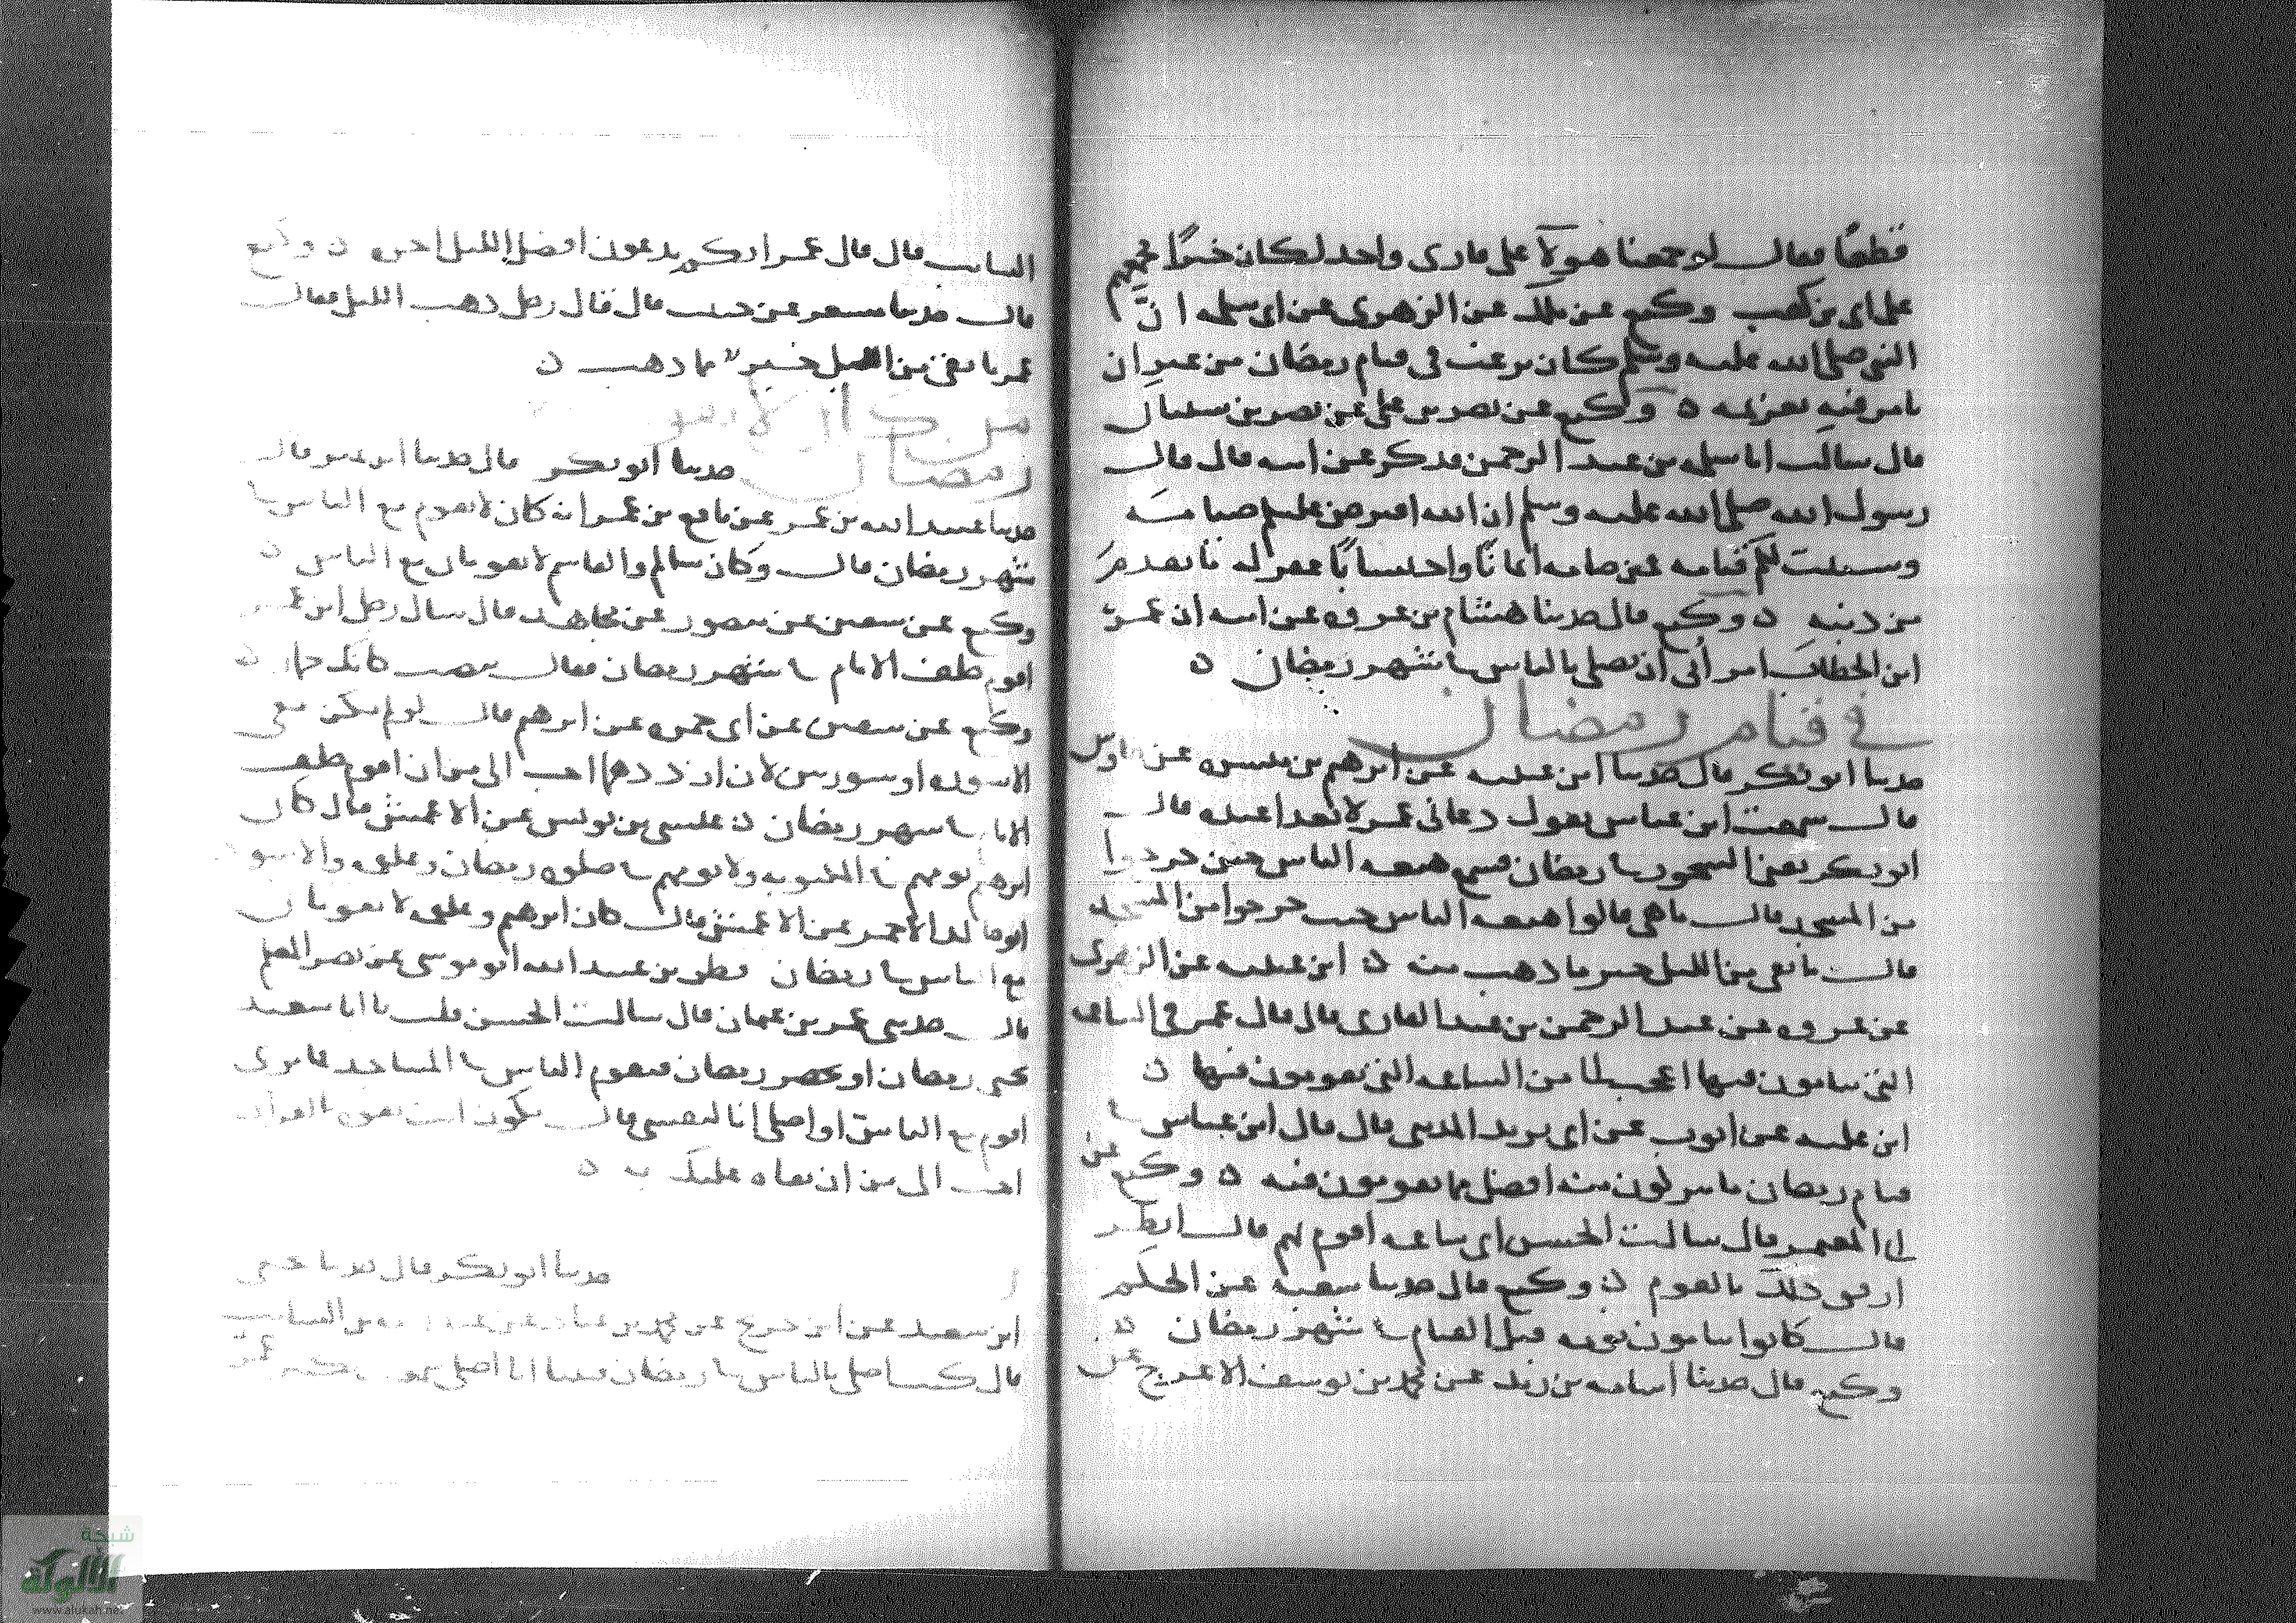 قطعا فقال لو جمعنا هولآ على قارى واحد لكان خيرًا فجمعهم
على ابى بن كعب وكيع عن ملك عن الزهرى عن ابى سلمه ان
النبى صلى الله عليه وسلم كان يرغب فى قيام رمضان من غير ان
يامر فيه بعزيمه ه وكيع عن نصر بن على عن نصر بن سيبان
قال سالت ابا سلمه بن عبد الرحمن فذكر عن ابيه قال قال
رسول الله صلى الله عليه وسلم ان الله افترض عليكم صيامه
وسننت لكم قيامه فمن صامه ايمانًا واحتسابًا غفر له ما تقدم
من ذنبه ه وكيع قال حدثنا هشام بن عروه عن ابيه ان عمر
ابن الخطاب امر أبى ان يصلى بالناس فى شهر رمضان ه
فى قيام رمضان
حدثنا ابو بكر قال حدثنا ابن عيينه عن ابرهيم بن ميسره عن طاوس
قال سمعت ابن عباس يقول دعانى عمر لاتغدا عنده قال
ابو بكر يعنى السحور فى رمضان فسمع هيعه الناس حين خرجوا
من المسجد قال ما هى قالوا هيعه الناس حيث خرجوا من المسجد
قال ما بقى من الليل خير مما ذهب منه ه ابن عيينه عن الزهرى
عن عروه عن عبد الرحمن بن عبد القارى قال قال عمر فى الساعه
التى ينامون فيها اعجب الى من الساعه التى يقومون فيها ه
ابن عليه عن ايوب عن ابى يزيد المدينى قال قال ابن عباس فى
قيام رمضان ما يتركون منه افضل مما يقومون فيه ه وكيع عن
ابى المعتمر قال سالت الحسن اى ساعه اقوم بهم قال انظر
ارفق ذلك بالقوم ه وكيع قال حدثنا شعبه عن الحكم
قال كانوا ينامون نومه قبل القيام فى شهر رمضان ه
وكيع قال حدثنا اسامه بن زيد عن محمد بن يوسف الاعرج عن
السايب قال قال عمر انكم تدعون افضل الليل اخره ه وكيع
قال حدثنا مسعر عن حبيب قال قال رجل ذهب الليل فقال
عمر ما بقى من الليل خير مما ذهب ه
رمضان حدثنا ابو بكر قال حدثنا ابن نمير قال
حدثنا عبيد الله بن عمر عن نافع بن عمر انه كان لا يقوم مع الناس فى
شهر رمضان قال وكان سالم والقاسم لا يقومان مع الناس ه
وكيع عن سفين عن منصور عن مجاهد قال سال رجل ابن عمر
اقوم خلف الامام فى شهر رمضان فقال تنصت كانك حمار ه
وكيع عن سفين عن ابى حمزه عن ابرهيم قال لو لم يكن معى
الا سوره او سورتين لان ارددهما احب الى من ان اقوم خلف
الامام فى شهر رمضان ه عيسى بن يونس عن الاعمش قال كان
ابرهيم يومهم فى المكتوبه ولا يومهم فى صلوه رمضان وعلقمه والاسود
ابو خالد الاحمر عن الاعمش قال كان ابرهيم وعلقمه لا يقومان
مع الناس فى رمضان قطن بن عبد الله ابو موسى عن نصر المعلم
قال حدثنى عمر بن عثمان قال سالت الحسن قلت يا ابا سعيد
يجى رمضان او يحضر رمضان فيقوم الناس فى المساجد فما ترى
اقوم مع الناس او اصلى انا لنفسى قال تكون انت تفوه القرآن
احب الى من ان يفاه عليك به ه
حدثنا ابو بكر قال حدثنا يحيى
ابن سعيد عن ابن جريج عن محمد بن عباد عن عبد السايب
قال كنت اصلى بالناس فى رمضان فبينا انا اصلى تكبير